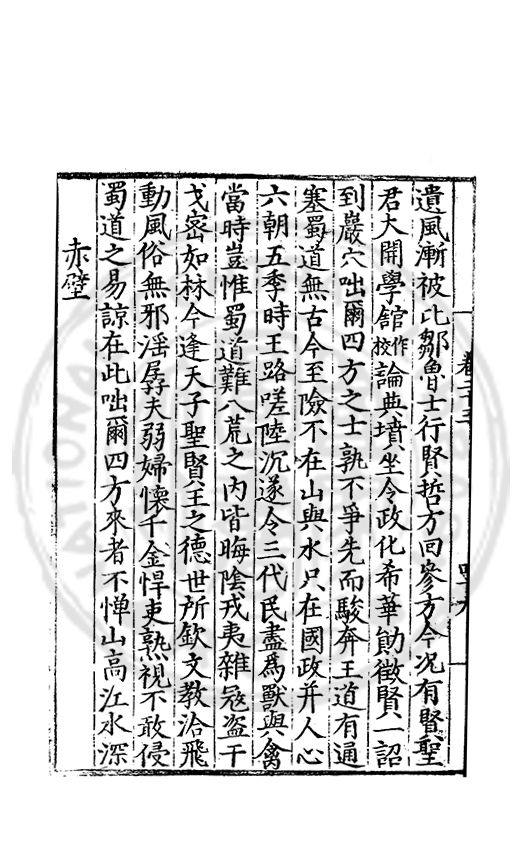 遺風漸被比鄒魯士行賢哲方回參方今况有賢聖
君大開學舘作校論典墳坐令政化希華勛徵賢一詔
到巖穴咄爾四方之士孰不爭先而駿奔王道有通
塞蜀道無古今至險不在山與水只在國政并人心
六朝五季時王路嗟陸沉遂令三代民盡爲獸與禽
當時豈惟蜀道難八荒之內皆晦陰戎夷雜冦盗干
戈密如林今逢天子聖賢王之德世所欽文教洽飛
動風俗無邪滛孱夫弱婦懷千金悍吏熟視不敢侵
蜀道之易諒在此咄爾四方來者不憚山高江水深
赤壁
卷二十三